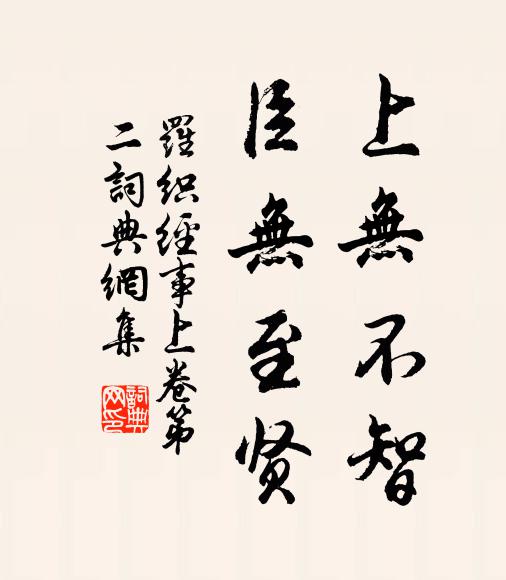 上無不智
臣無至贤
羅織經事上卷第
二詞典網集
詞典网印